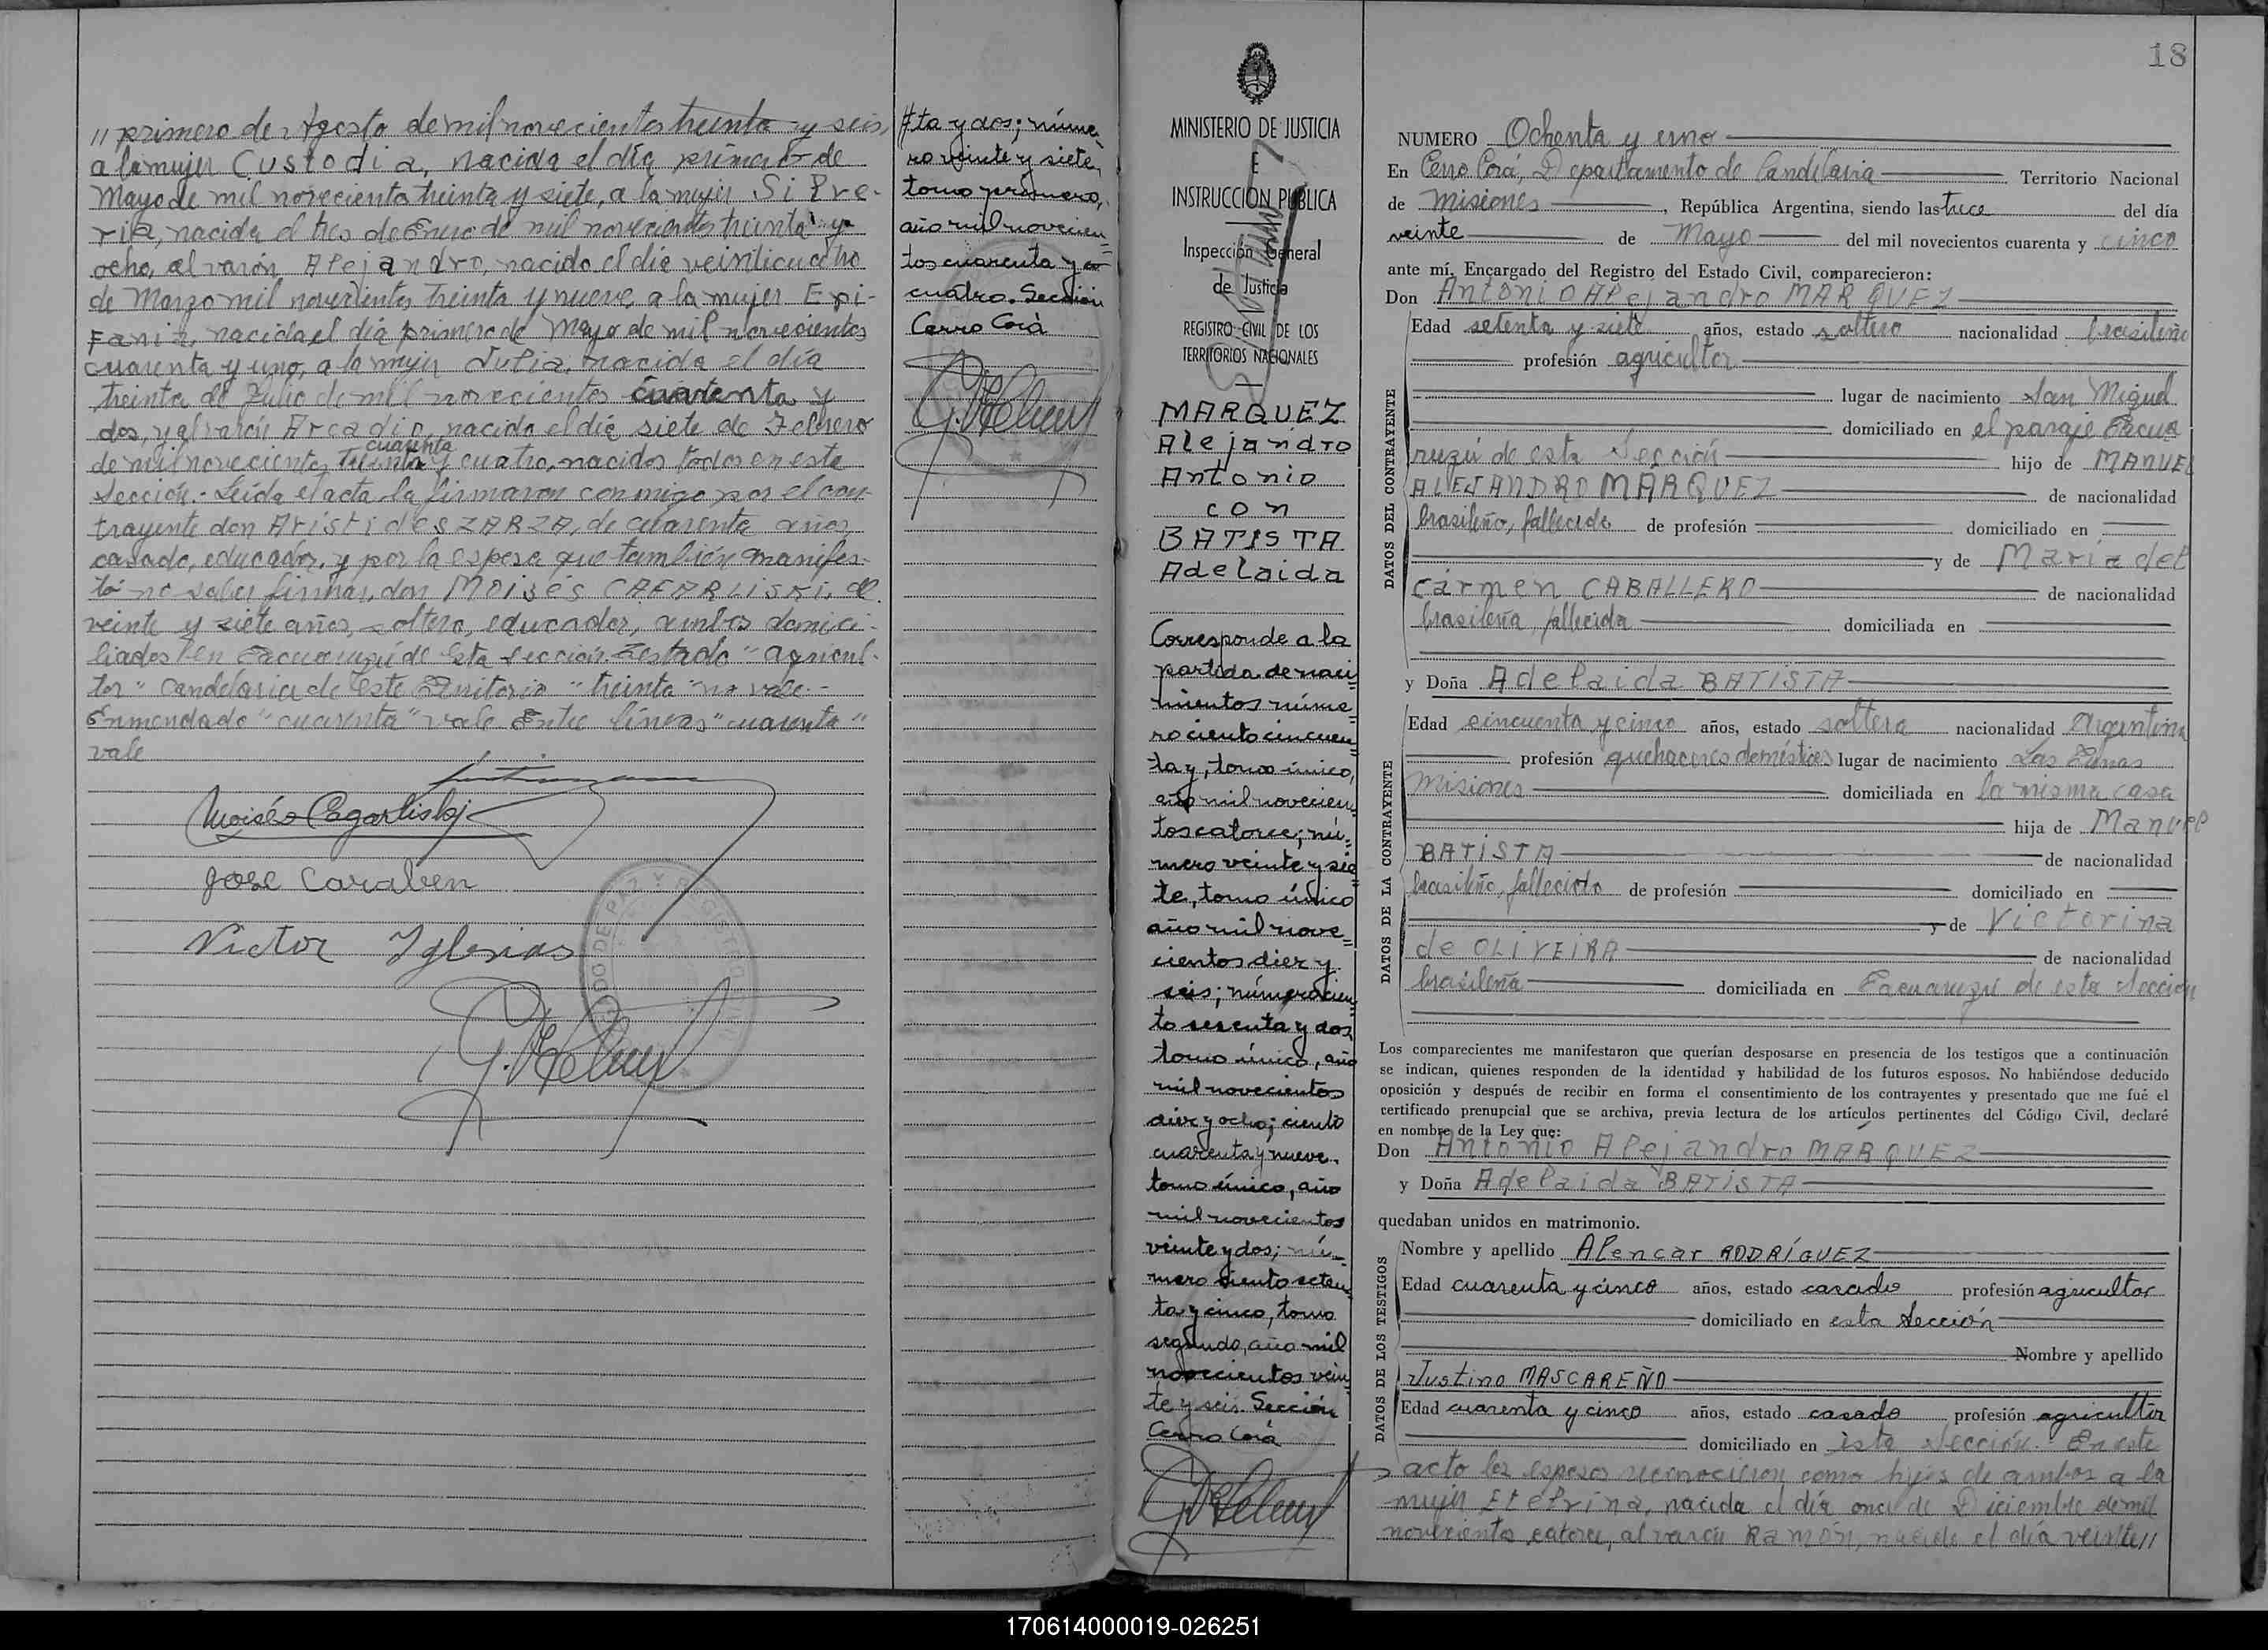 // primero de Agosto de mil novecientos treinta y seis,
a la mujer Custodia, nacida el día primero de
Mayo de mil novecientos treinta y siete, a la mujer Silve-
ria, nacida el tres de Enero de mil novecientos treinta y
ocho, al varón Alejandro, nacido el día veinticuatro
de Marzo mil novecientos treinta y nueve, a la mujer Epi-
fania, nacida el día primero de Mayo de mil novecientos
cuarenta y uno, a la mujer Julia, nacida el día
treinta de Julio de mil novecientos cuarenta y
dos, y al varón Arcadio, nacido el día siete de Febrero
cuarenta
de mil novecientos treinta y cuatro, nacidos todos en esta
Sección.- Leída el acta la firmaron conmigo, por el con-
trayente don Aristides ZARZA, de cuarenta años
casado, educador, y por la esposa que también manifes-
tó no saber firmar, don Moisés de
veinte y siete años, soltero, educador, ambos domici-
liados en de esta sección. Testado "agricul-
tor" Candelaria de este Territorio "treinta" no vale.-
Enmendado "cuarenta" vale Entre líneas "cuarenta"
vale
Moisés
José Caraben
Victor Iglesias
//ta y dos; núme-
ro veinte y siete,
tomo primero,
año mil novecien=
tos cuarenta y
cuatro. Sección
Cerro Corá
MINISTERIO DE JUSTICIA
E
INSTRUCCIÓN PUBLICA
Inspección General
de Justicia
REGISTRO CIVIL DE LOS
TERRITORIOS NACIONALES
MARQUEZ
Alejandro
Antonio
con
BATISTA
Adelaida
Corresponde a la
partida de naci=
mientos núme=
ro ciento cincuen=
ta y, tomo único,
año mil novecien=
tos catorce; nú=
mero veinte y sie=
te, tomo único
año mil nove=
cientos diez y
seis; número cien=
to sesenta y dos
tomo único, año
mil novecientos
diez y ocho; ciento
cuarenta y nueve,
tomo único, año
mil novecientos
veinte y dos; nú=
mero ciento seten=
ta y cinco, tomo
segundo, año mil
novecientos vein=
te y seis. Sección
Cerro Corá
18
NUMERO Ochenta y uno
En Cerro Corá, Departamento de Candelaria Territorio Nacional
de Misiones, República Argentina, siendo las trece del día
veinte de Mayo del mil novecientos cuarenta y cinco
ante mí, Encargado del Registro del Estado Civil, comparecieron:
Don Antonio Alejandro MARQUEZ
DATOS DEL CONTRAYENTE
Edad setenta y siete años, estado soltero nacionalidad brasileño
profesión agricultor
lugar de nacimiento San Miguel
domiciliado en el paraje Tacua
ruzú de esta Sección hijo de MANUEL
ALEJANDRO MARQUEZ de nacionalidad
brasileño, fallecido de profesión domiciliado en
y de María del
Cármen CABALLERO de nacionalidad
brasileña, fallecida domiciliada en
y Doña Adelaida BATISTA
DATOS DE LA CONTRAYENTE
Edad cincuenta y cinco años, estado soltera nacionalidad Argentina
profesión quehaceres domésticos lugar de nacimiento Las Tunas
Misiones domiciliada en la misma casa
hija de Manuel
BATISTA de nacionalidad
brasileño, fallecido de profesión domiciliado en
y de Victorina
de OLIVEIRA de nacionalidad
brasileña domiciliada en Tacuaruzú de esta Sección
Los comparecientes me manifestaron que querían desposarse en presencia de los testigos que a continuación
se indican, quienes responden de la identidad y habilidad de los futuros esposos. No habiéndose deducido
oposición y después de recibir en forma el consentimiento de los contrayentes y presentado que me fué el
certificado prenupcial que se archiva, previa lectura de los artículos pertinentes del Código Civil, declaré
en nombre de la Ley que:
Don Antonio Alejandro MARQUEZ
y Doña Adelaida BATISTA
quedaban unidos en matrimonio.
DATOS DE LOS TESTIGOS
Nombre y apellido Alencar RODRÍGUEZ
Edad cuarenta y cinco años, estado casado profesión agricultor
domiciliado en esta Sección
Nombre y apellido
Justino MASCAREÑO
Edad cuarenta y cinco años, estado casado profesión agricultor
domiciliado en esta Sección. En este
acto los esposos reconocieron como hijos de ambos a la
mujer Etelvina, nacida el día once de Diciembre de mil
novecientos catorce, al varón Ramón, nacido el día veinte//
170614000019-026251